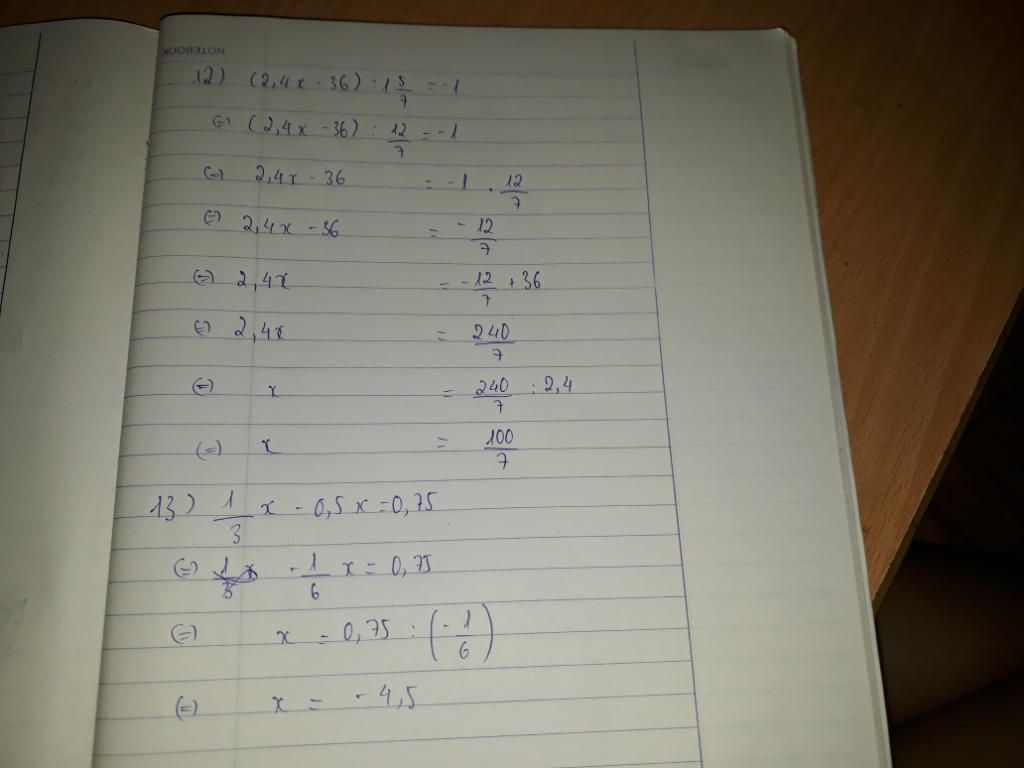 NOTEBOOK
12) (2,4x - 36) : 1 5/7 = -1
(=) (2,4x - 36) : 12/7 = -1
(=) 2,4x - 36 = -1 . 12/7
(=) 2,4x - 36 = -12/7
(=) 2,4x = -12/7 + 36
(=) 2,4x = 240/7
(=) x = 240/7 : 2,4
(=) x = 100/7
13) 1/3 x - 0,5x = 0,75
(=) -1/6 x = 0,75
(=) x = 0,75 : (-1/6)
(=) x = -4,5